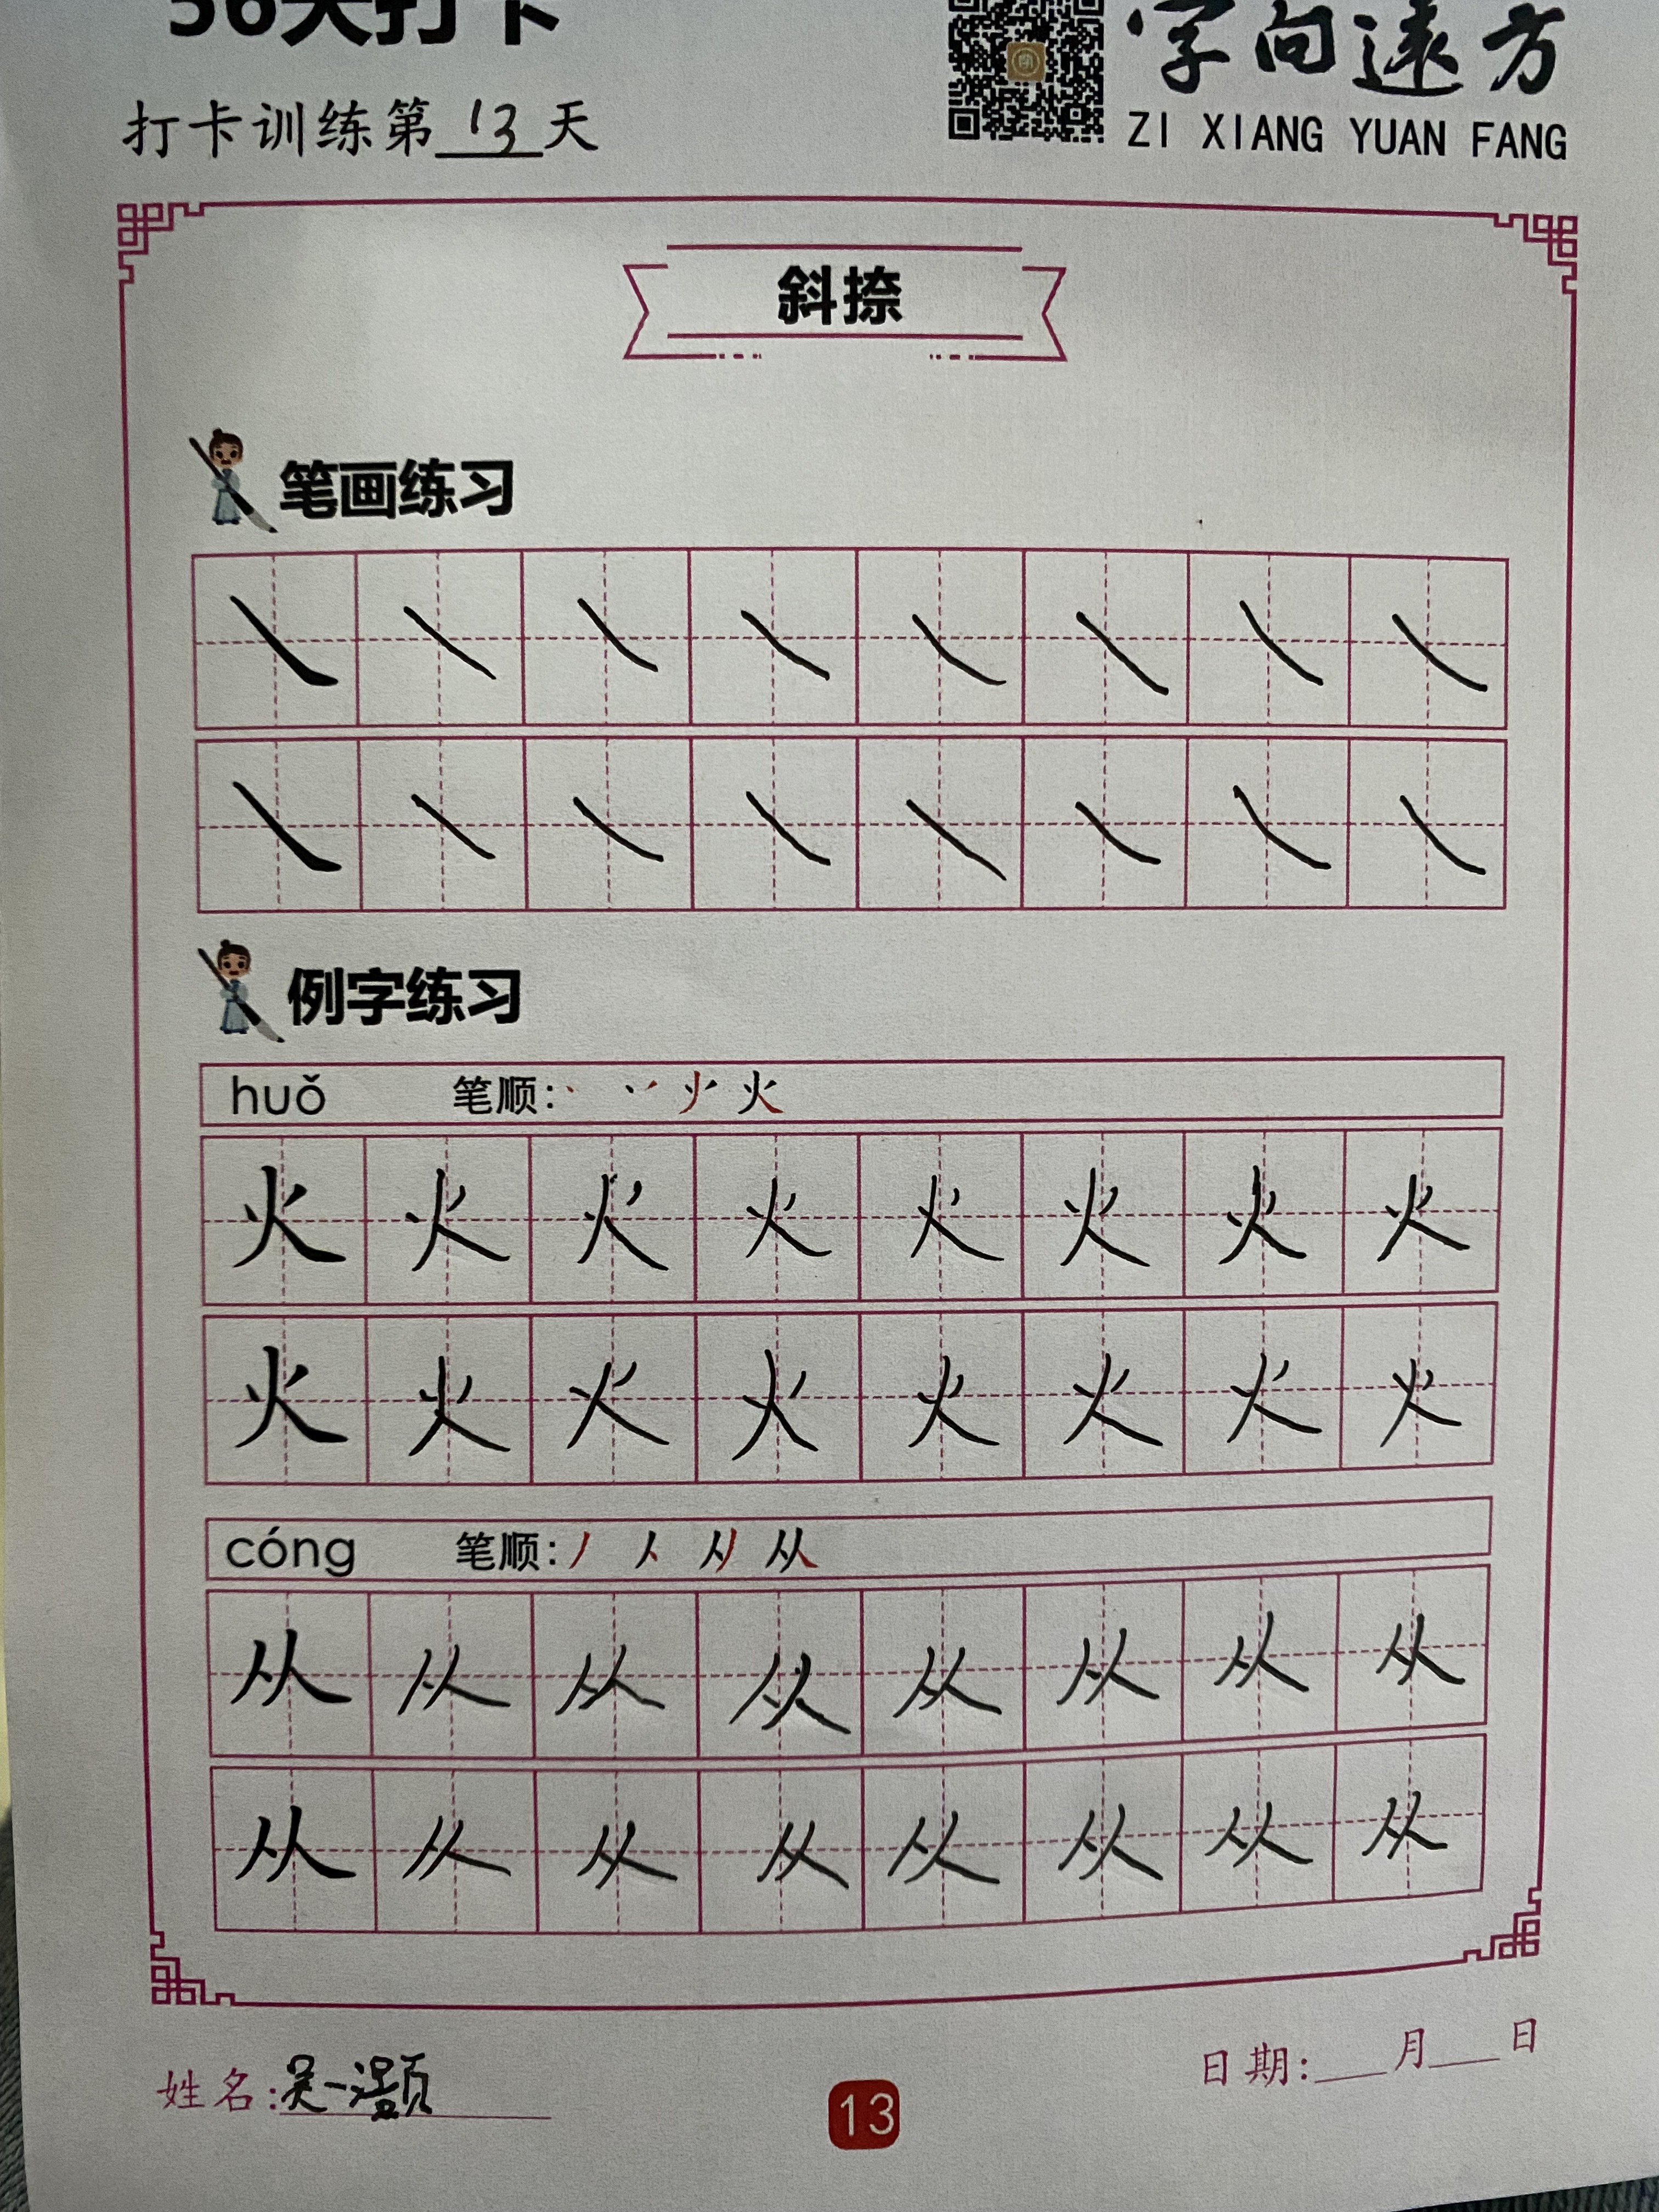 36天打卡
字向遠方
ZI XIANG YUAN FANG
打卡训练第 13 天
斜捺
笔画练习
例字练习
huǒ 笔顺:
火 火 火 火 火 火 火 火
火 火 火 火 火 火 火 火
cóng 笔顺:
从 从 从 从 从 从 从 从
从 从 从 从 从 从 从 从
姓名:吴一灏
日期:___月___日
13